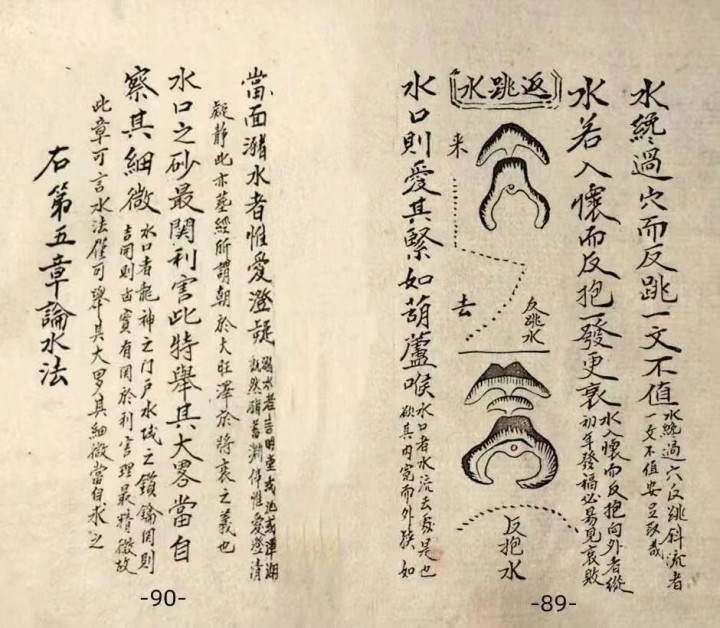 水纔過穴而反跳一文不值
水纔過穴反跳斜流者
一文不值安足取哉
水若入懷而反抱一發更衰
水入懷而反抱向外者縱
初年發福必易見衰敗
返跳水
来
去
反跳水
反抱水
水口則愛其緊如葫蘆喉
水口者水流去處是也
欲其内寬而外狹如
-89-
當面潴水者惟愛澄凝
潴水者言明堂或池或潭湖
既然潴蓄渊停惟愛澄清
凝静此亦葬經所謂朝於大旺澤於將衰之義也
水口之砂最関利害此特舉其大畧當自
察其細微
水口者龍神之门户水城之鎖鑰関則
吉開則凶實有関於利害理最精微故
此章可言水法僅可舉其大畧其細微當自求之
右第五章論水法
-90-